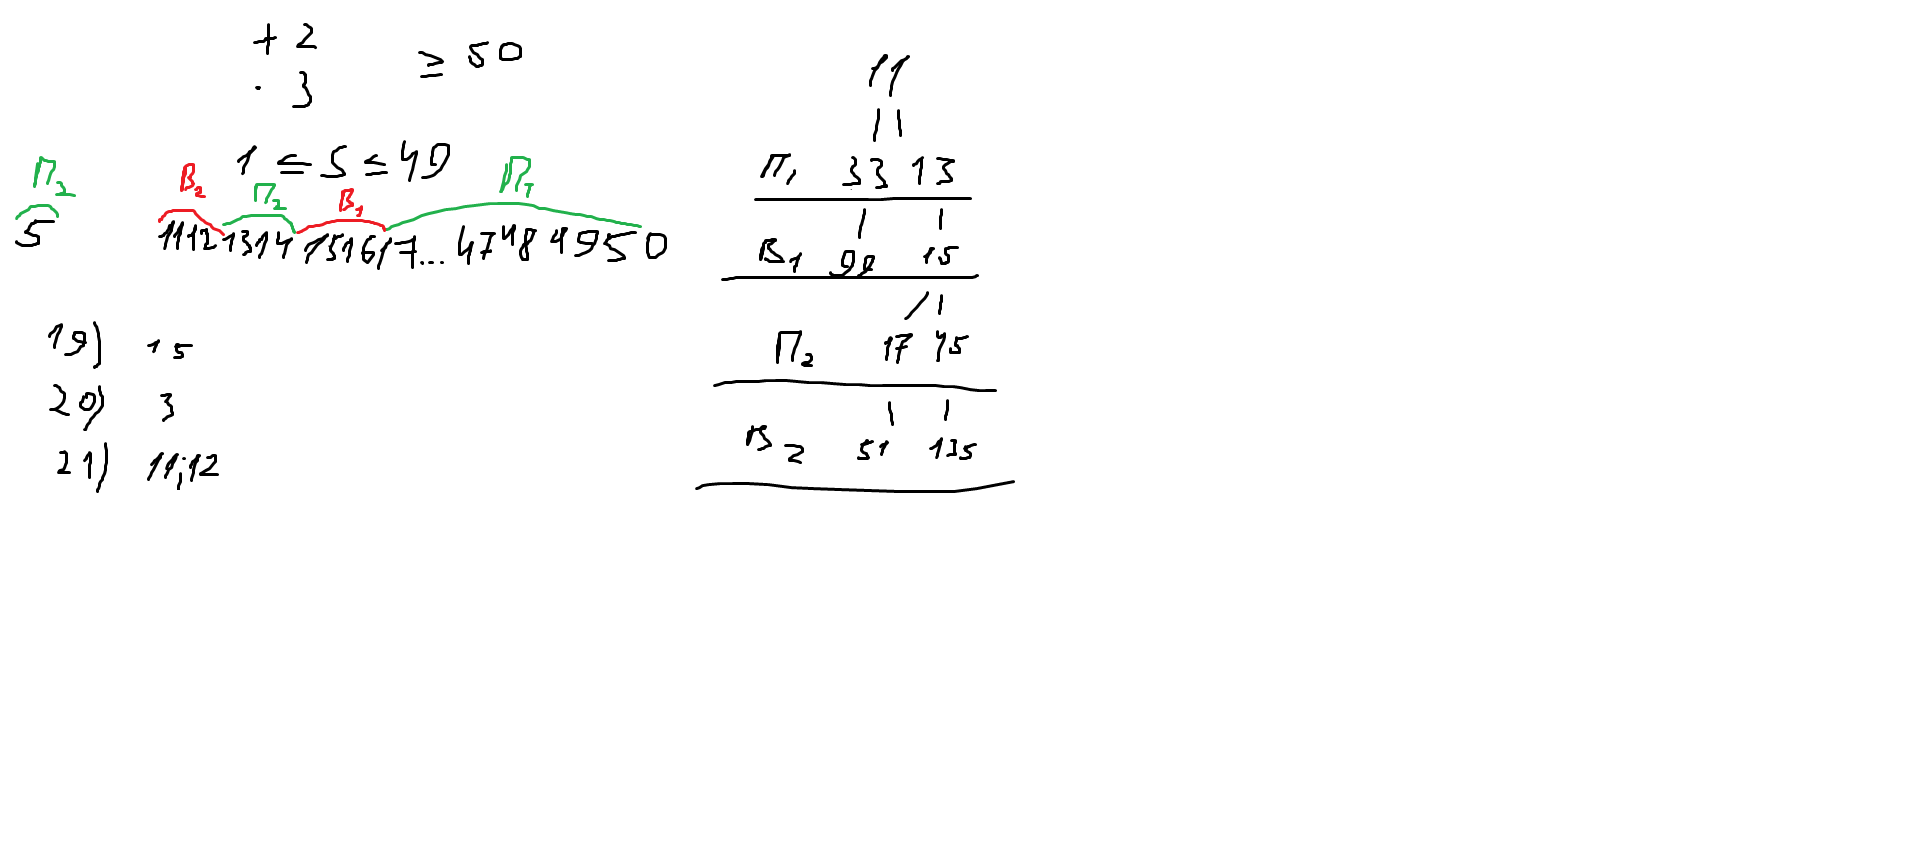 + 2
· 3
≥ 50
1 ≤ S ≤ 49
П₂ В₂ П₂ В₁ П₁
5 11 12 13 14 15 16 17... 47 48 49 50
19) 15
20) 3
21) 11;12
11
П₁ 33 13
В₁ 99 15
П₂ 17 45
В₂ 51 135